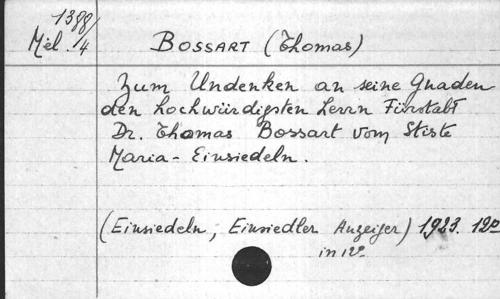 1388/4
Mél.
BOSSART (Thomas)
Zum Undenken an seine Gnaden
den hochwürdigsten Herrn Fürstabt
Dr. Thomas Bossart vom Stiste
Maria-Einsiedeln.
(Einsiedeln, Einsiedler Anzeiger) 1923. 12º
in 12º